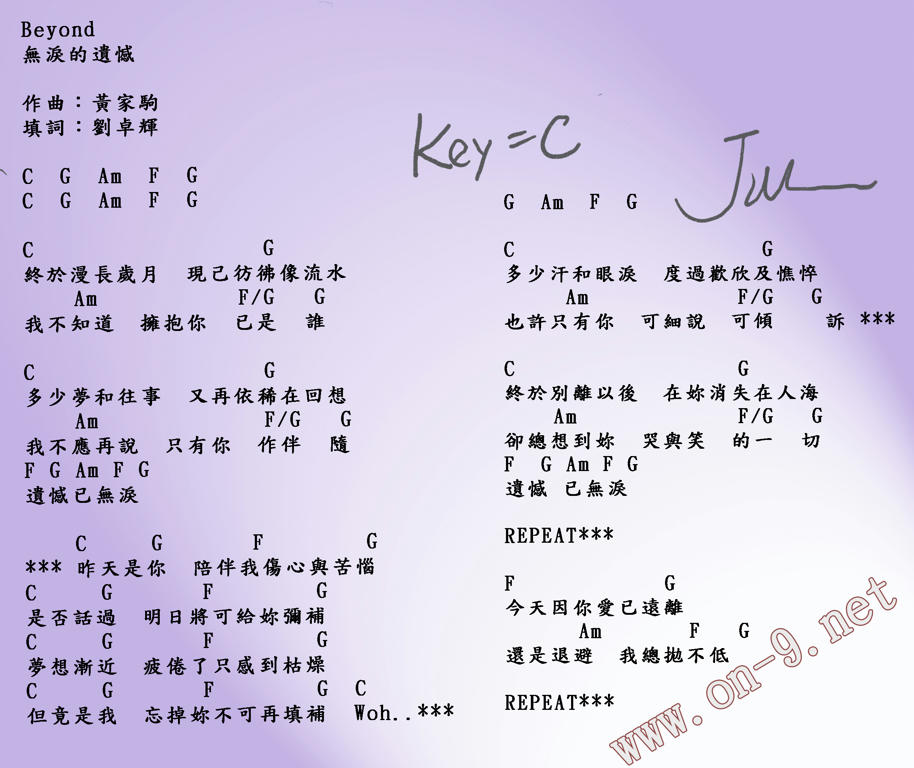 Beyond
無淚的遺憾
作曲：黃家駒
填詞：劉卓輝
Key=C
C G Am F G
C G Am F G
C G
終於漫長歲月 現已彷彿像流水
Am F/G G
我不知道 擁抱你 已是 誰
C G
多少夢和往事 又再依稀在回想
Am F/G G
我不應再說 只有你 作伴 隨
F G Am F G
遺憾已無淚
C G F G
*** 昨天是你 陪伴我傷心與苦惱
C G F G
是否話過 明日將可給妳彌補
C G F G
夢想漸近 疲倦了只感到枯燥
C G F G C
但竟是我 忘掉妳不可再填補 Woh..***
G Am F G
C G
多少汗和眼淚 度過歡欣及憔悴
Am F/G G
也許只有你 可細說 可傾 訴 ***
C G
終於別離以後 在妳消失在人海
Am F/G G
卻總想到妳 哭與笑 的一 切
F G Am F G
遺憾 已無淚
REPEAT***
F G
今天因你愛已遠離
Am F G
還是退避 我總拋不低
REPEAT***
www.on-9.net